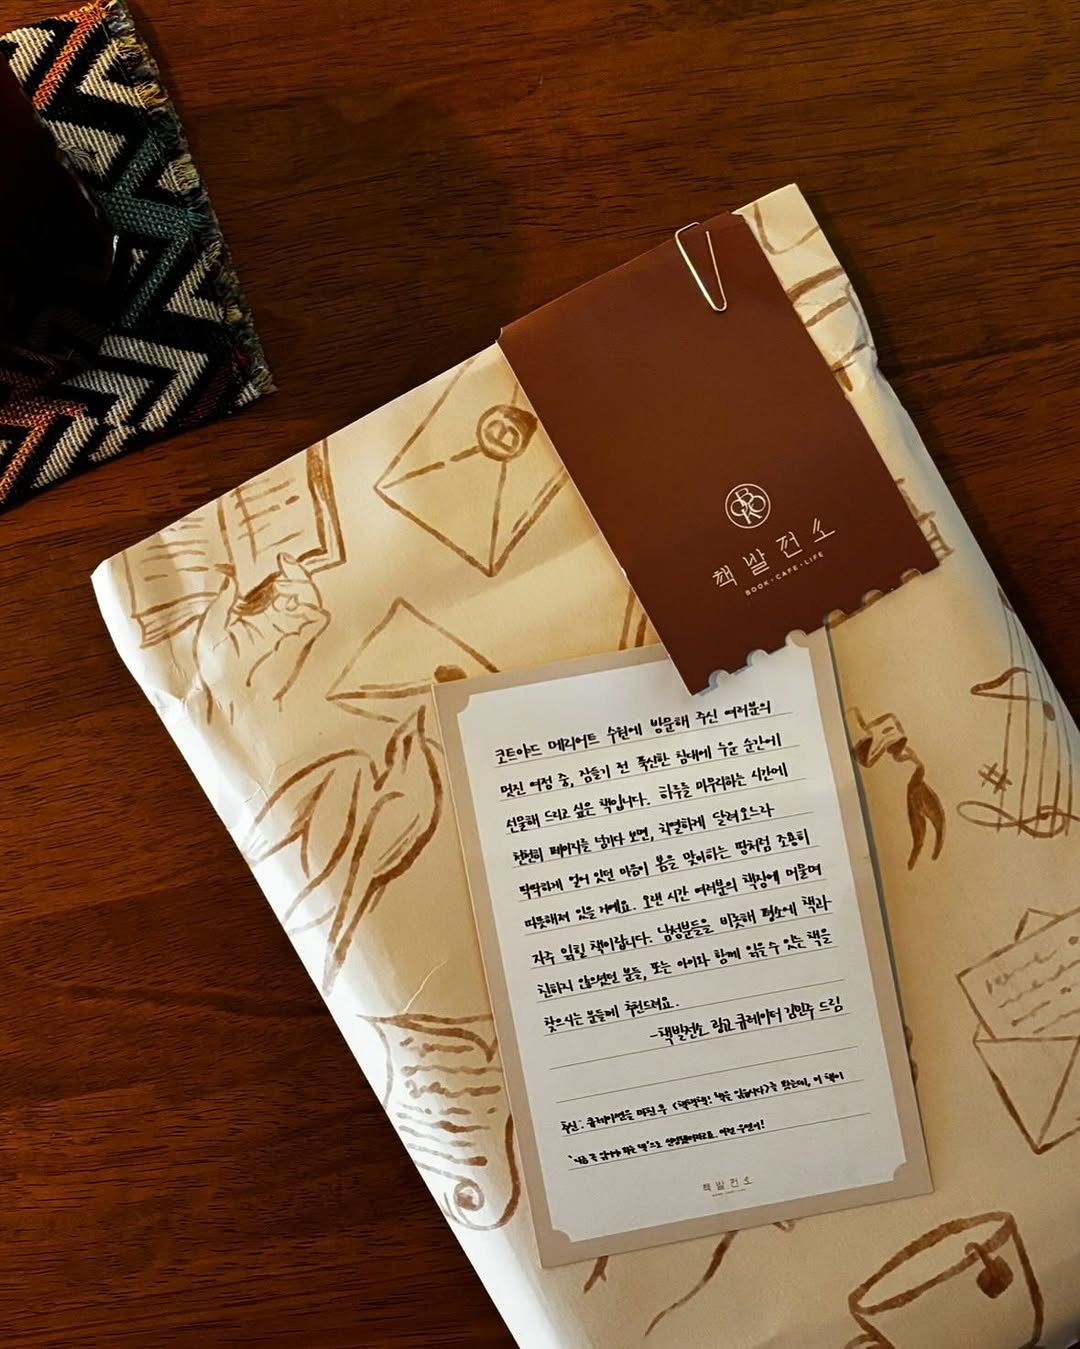 책발전소
BOOK · CAFE · LIFE
코트야드 메리어트 수원에 방문해 주신 여러분의
멋진 여정 중, 잠들기 전 푹신한 침대에 누운 순간에
선물해 드리고 싶은 책입니다. 하루를 마무리하는 시간에
천천히 페이지를 넘기다 보면, 치열하게 달려오느라
딱딱하게 얼어 있던 마음이 봄을 맞이하는 땅처럼 조용히
따뜻해져 있을 거예요. 오랜 시간 여러분의 책장에 머물며
자주 읽힐 책이랍니다. 남성분들을 비롯해 평소에 책과
친하지 않으셨던 분들, 또는 아이와 함께 읽을 수 있는 책을
찾으시는 분들께 추천드려요.
-책발전소 광교 큐레이터 김민주 드림
추신. 큐레이션을 마친 후 책을 읽습니다>를 봤는데, 이 책이
선정됐더라고요. 이런 우연이!
책발전소